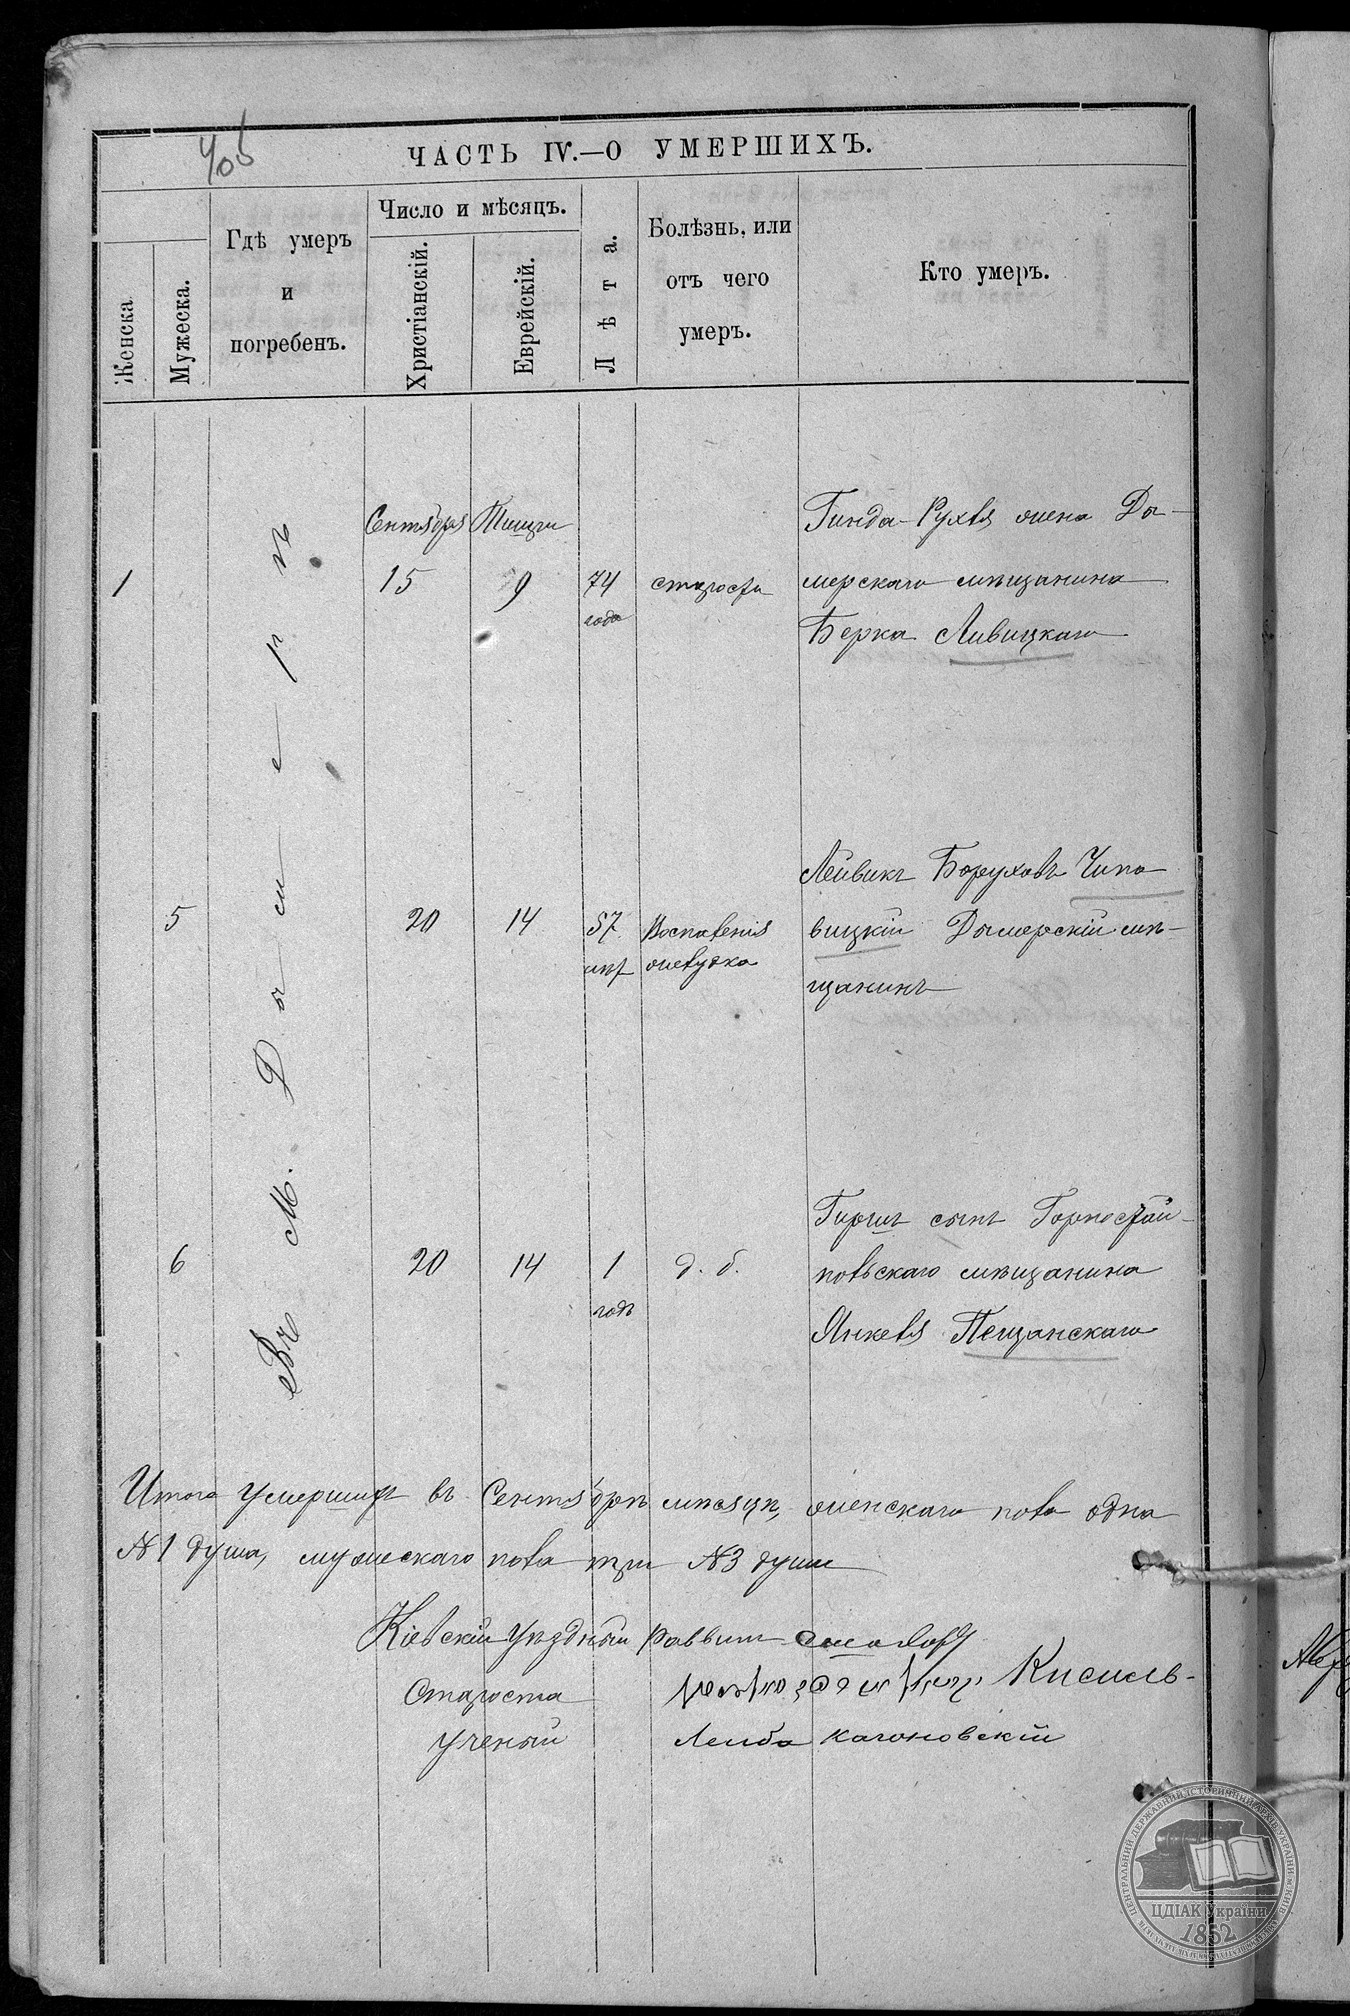 405
ЧАСТЬ IV.—О УМЕРШИХЪ.
Женска
Мужеска.
Гдѣ умеръ
и
погребенъ.
Число и мѣсяцъ.
Христіанскій.
Еврейскій.
Лѣта.
Болѣзнь, или
отъ чего
умеръ.
Кто умеръ.
Въ М. Дымерѣ
Сентября Тишри
1 15 9 74 старости
года
Гинда-Рухля жена Ды-
мерскаго мѣщанина
Берка Ливицкаго
5 20 14 57 Воспаленія
лѣт желудка
Лейвикъ Боруховъ Чипо
вицкій Дымерскій мѣ-
щанинъ
6 20 14 1 д. б.
годъ
Гиршъ сынъ Горностай-
польскаго мѣщанина
Янкеля Пещанскаго
Итого умершихъ въ Сентябрѣ мѣсяцѣ, женскаго пола одна
№1 душа, мужескаго пола три №3 души
Кіевскій Уѣздный Раввинъ
Староста Кисиль-
Ученый Лейба Кагоновскій
ЦЕНТРАЛЬНИЙ ДЕРЖАВНИЙ ІСТОРИЧНИЙ АРХІВ УКРАЇНИ, М. КИЇВ
ЦДІАК України
1852